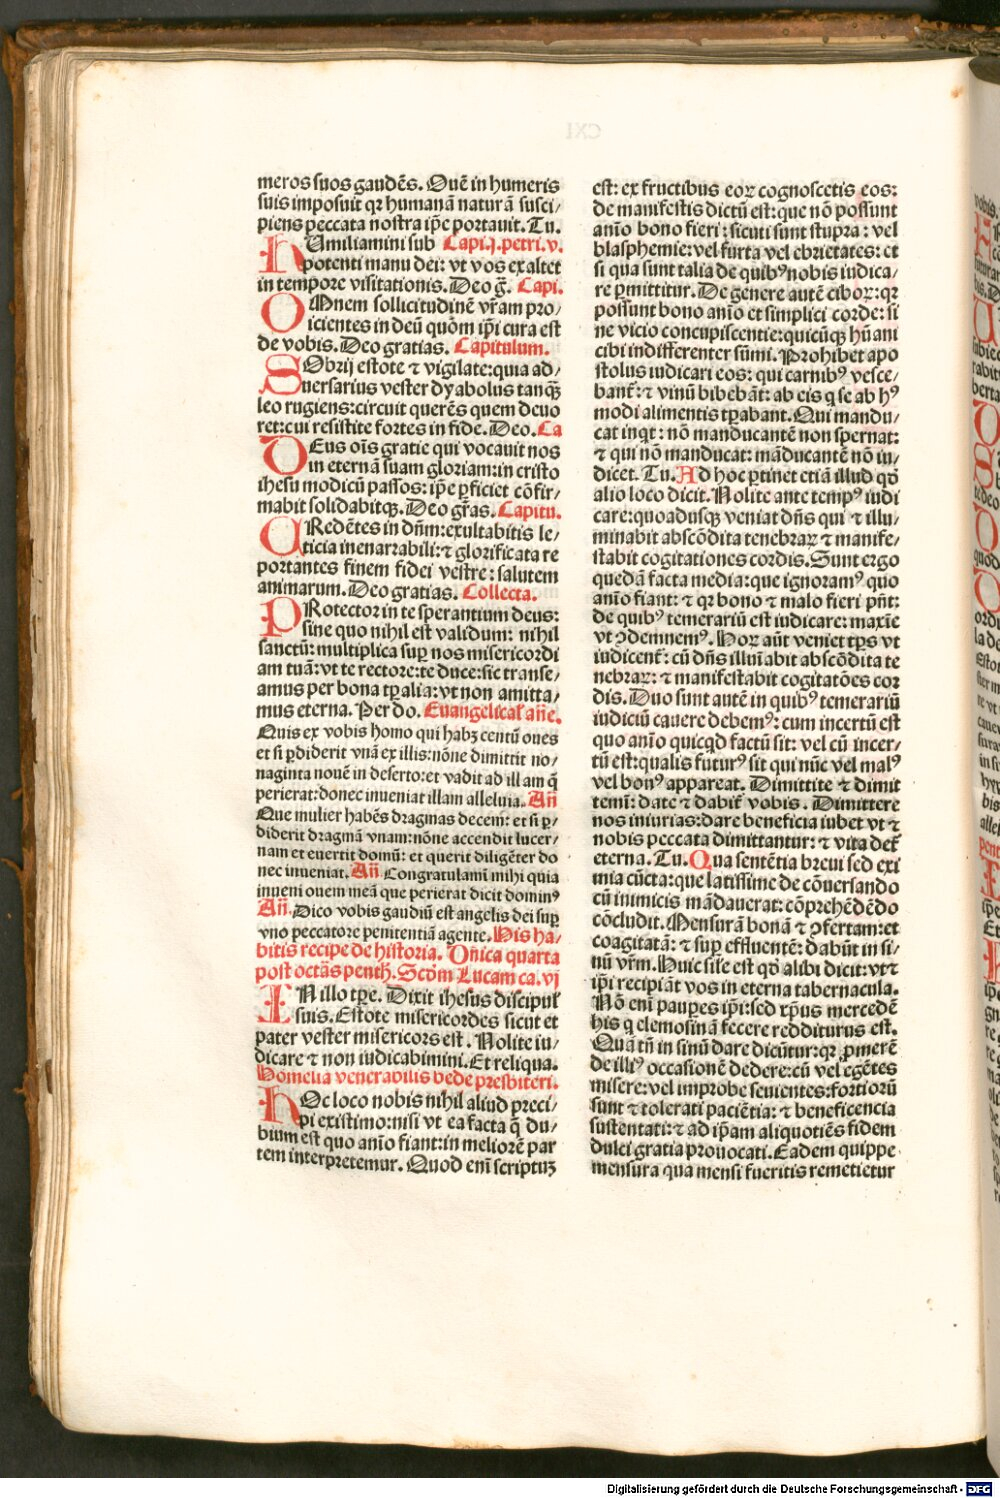 meros suos gaudēs. Quē in humeris
suis imposuit qꝛ humanā naturā susci/
piens peccata nostra ip̄e portauit. Tu.
HUmiliamini sub Capi.j.petri.v.
potenti manu dei: vt vos exaltet
in tempore visitationis. Deo g̃. Capi.
OMnem sollicitudinē vr̄am pro/
icientes in deū quōm ip̄i cura est
de vobis. Deo gratias. Capitulum.
SObrij estote ⁊ vigilate: quia ad/
uersarius vester dyabolus tanqȝ
leo rugiens: circuit querēs quem deuo
ret: cui resistite fortes in fide. Deo. Ca
DEus oīs gratie qui vocauit nos
in eternā suam gloriam: in cristo
ihesu modicū passos: ip̄e ꝑficiet cōfir/
mabit solidabitqȝ. Deo gr̄as. Capitu.
CRedētes in dn̄m: exultabitis le/
ticia inenarrabili: ⁊ glorificata re
portantes finem fidei vestre: salutem
animarum. Deo gratias. Collecta.
PRotector in te sperantium deus:
sine quo nihil est validum: nihil
sanctū: multiplica suꝑ nos misericordi
am tuā: vt te rectore: te duce: sic transe/
amus per bona tꝑalia: vt non amitta/
mus eterna. Per do. Euangelical' an̄e.
Quis ex vobis homo qui habȝ centū oues
et si ꝑdiderit vnā ex illis: nōne dimittit no/
naginta nouē in deserto: et vadit ad illam q̄
perierat: donec inueniat illam alleluia. An̄
Que mulier habēs dragmas decem: et si ꝑ/
diderit dragmā vnam: nōne accendit lucer/
nam et euertit domū: et querit diligēter do
nec inueniat. An̄. Congratulamī mihi quia
inueni ouem meā que perierat dicit dominꝰ
An̄. Dico vobis gaudiū est angelis dei suꝑ
vno peccatore penitentiā agente. His ha/
bitis recipe de historia. Dn̄ica quarta
post octās penth. Scd̄m Lucam ca. vj
IN illo tꝑe. Dixit ihesus discipul'
suis. Estote misericordes sicut et
pater vester misericors est. Nolite iu/
dicare ⁊ non iudicabimini. Et reliqua.
Homelia venerabilis bede presbiteri.
HOc loco nobis nihil aliud preci/
pi existimo: nisi vt ea facta q̄ du/
bium est quo anīo fiant: in meliorē par
tem interpretemur. Quod enī scriptuȝ
est: ex fructibus eoꝝ cognoscetis eos:
de manifestis dictū est: que nō possunt
anīo bono fieri: sicuti sunt stupra: vel
blasphemie: vel furta vel ebrietates: et
si qua sunt talia de quibꝰ nobis iudica/
re ꝑmittitur. De genere autē ciboꝝ: qꝛ
possunt bono anīo et simplici corde: si
ne vicio concupiscentie: quicūqȝ hūani
cibi indifferenter sūmi. Prohibet apo
stolus iudicari eos: qui carnibꝰ vesce/
bant̄: ⁊ vinū bibebāt: ab eis q se ab hꝰ
modi alimentis tꝑabant. Qui mandu/
cat inqt: nō manducantē non spernat:
⁊ qui nō manducat: māducantē nō iu/
dicet. Tu. Ad hoc ꝑtinet etiā illud qd̄
alio loco dicit. Nolite ante tempꝰ iudi
care: quoadusqȝ veniat dn̄s qui ⁊ illu/
minabit abscōdita tenebraꝝ ⁊ manife/
stabit cogitationes cordis. Sunt ergo
quedā facta media: que ignoramꝰ quo
anīo fiant: ⁊ qꝛ bono ⁊ malo fieri pn̄t:
de quibꝰ temerariū est iudicare: maxīe
vt ↄdemnemꝰ. Hoꝝ aūt veniet tꝑs vt
iudicent̄: cū dn̄s illuīabit abscōdita te
nebraꝝ: ⁊ manifestabit cogitatōes cor
dis. Duo sunt autē in quibꝰ temerariū
iudiciū cauere debemꝰ: cum incertū est
quo anīo quicqd factū sit: vel cū incer/
tū est: qualis futurꝰ sit qui nūc vel malꝰ
vel bonꝰ appareat. Dimittite ⁊ dimit
temī: date ⁊ dabit̄ vobis. Dimittere
nos iniurias: dare beneficia iubet vt ⁊
nobis peccata dimittantur: ⁊ vita det̄
eterna. Tu. Qua sentētia breui sed exi
mia cūcta: que latissime de cōuersando
cū inimicis mādauerat: cōprehēdēdo
cōcludit. Mensurā bonā ⁊ ↄfertam: et
coagitatā: ⁊ suꝑ effluentē: dabūt in si/
nū vr̄m. Huic sil'e est qd̄ alibi dicit: vt ⁊
ip̄i recipiāt vos in eterna tabernacula.
Nō enī pauꝑes ip̄i: sed xp̄us mercedē
his q elemosinā fecere redditurus est.
Quā tn̄ in sinū dare dicūtur: qꝛ ꝓmerē
de illiꝰ occasionē dedere: cū vel egētes
misere: vel improbe seuientes: fortiorū
sunt ⁊ tolerati paciētia: ⁊ beneficencia
sustentati: ⁊ ad ip̄am aliquotiēs fidem
dulci gratia prouocati. Eadem quippe
mensura qua mensi fueritis remetietur
Digitalisierung gefördert durch die Deutsche Forschungsgemeinschaft - DFG